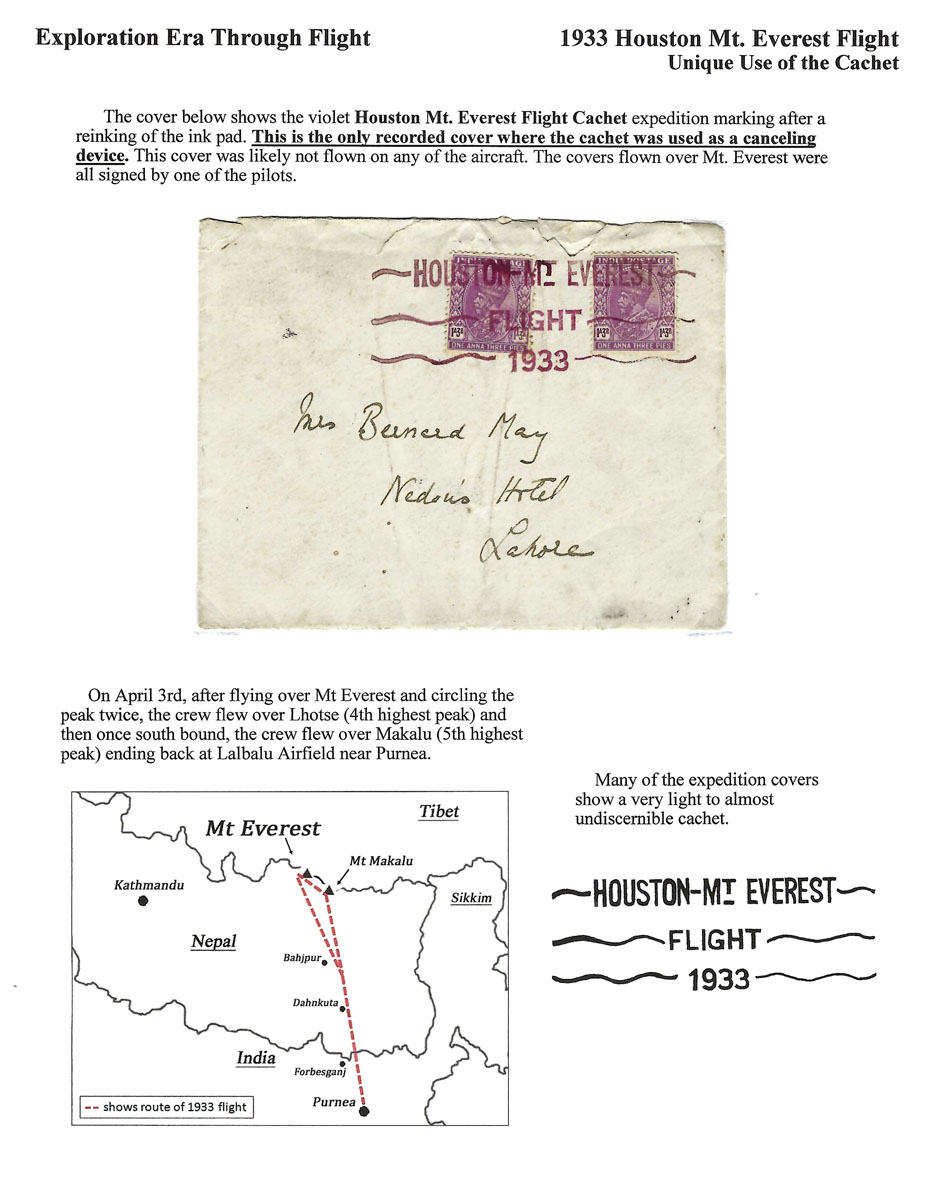 Exploration Era Through Flight
1933 Houston Mt. Everest Flight
Unique Use of the Cachet
The cover below shows the violet Houston Mt. Everest Flight Cachet expedition marking after a
reinking of the ink pad. This is the only recorded cover where the cachet was used as a canceling
device. This cover was likely not flown on any of the aircraft. The covers flown over Mt. Everest were
all signed by one of the pilots.
INDIA POSTAGE
INDIA POSTAGE
HOUSTON-MT EVEREST
FLIGHT
1933
1A3P
1A3P
1A3P
ONE ANNA THREE PIES
ONE ANNA THREE PIES
Mrs Bernard May
Nedou's Hotel
Lahore
On April 3rd, after flying over Mt Everest and circling the
peak twice, the crew flew over Lhotse (4th highest peak) and
then once south bound, the crew flew over Makalu (5th highest
peak) ending back at Lalbalu Airfield near Purnea.
Many of the expedition covers
show a very light to almost
undiscernible cachet.
Tibet
Mt Everest
Mt Makalu
Kathmandu
Sikkim
Nepal
Bahjpur
Dahnkuta
India
Forbesganj
Purnea
shows route of 1933 flight
HOUSTON-MT EVEREST
FLIGHT
1933